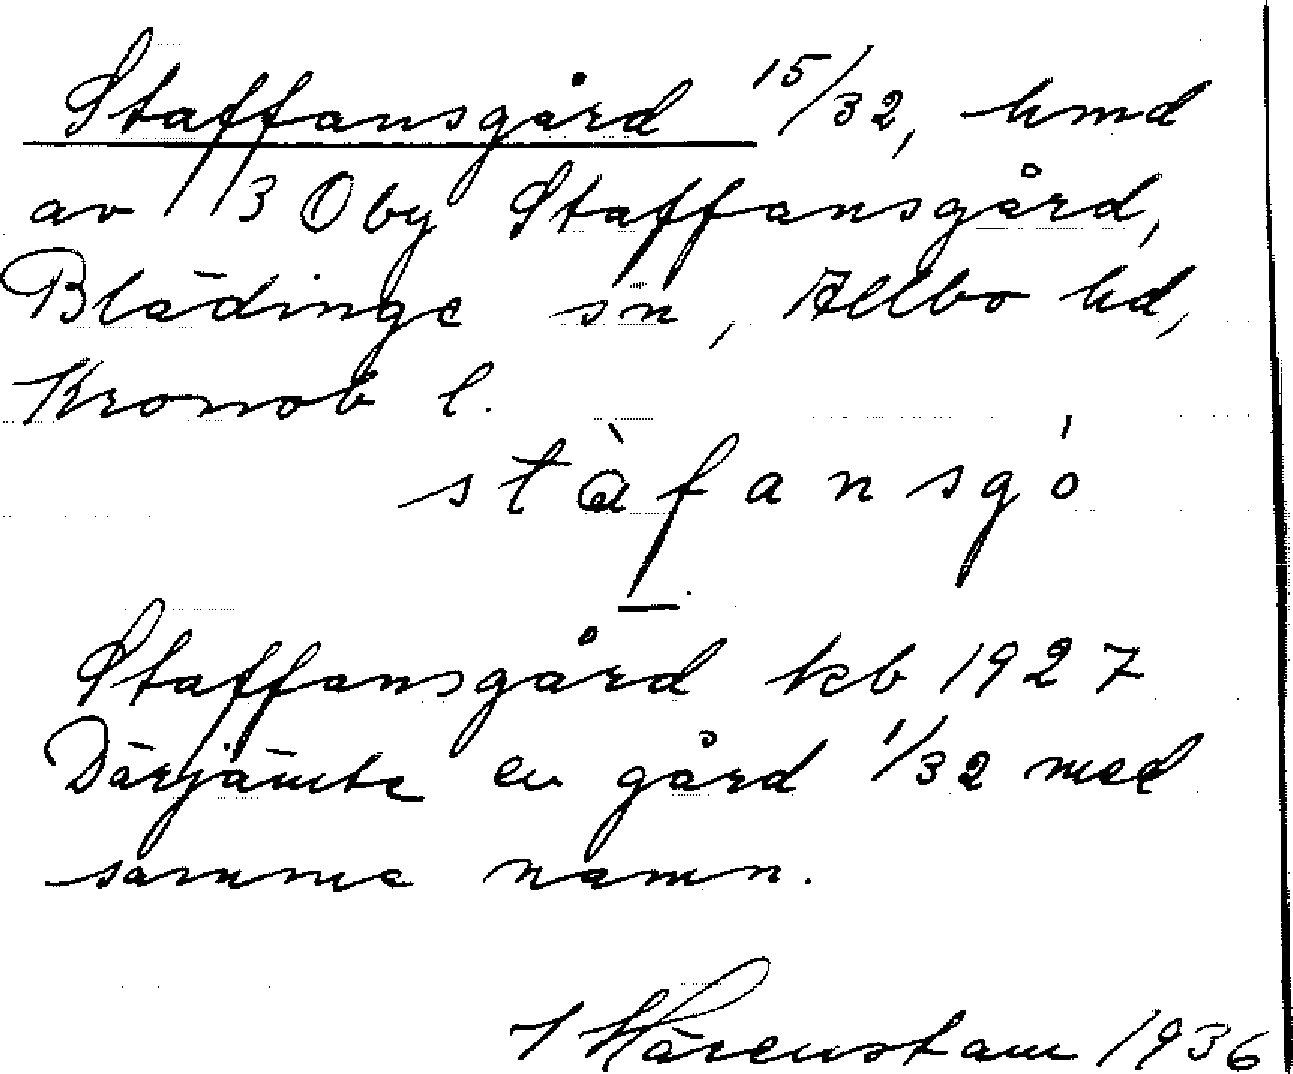 Staffansgård 15/32, hmd
av 3 O by Staffansgård,
Blädinge sn, Allbo hd,
Kronob l.
stàfansgó
Staffansgård kb 1927
Därjämte en gård 1/32 med
samma namn.
I Härenstam 1936